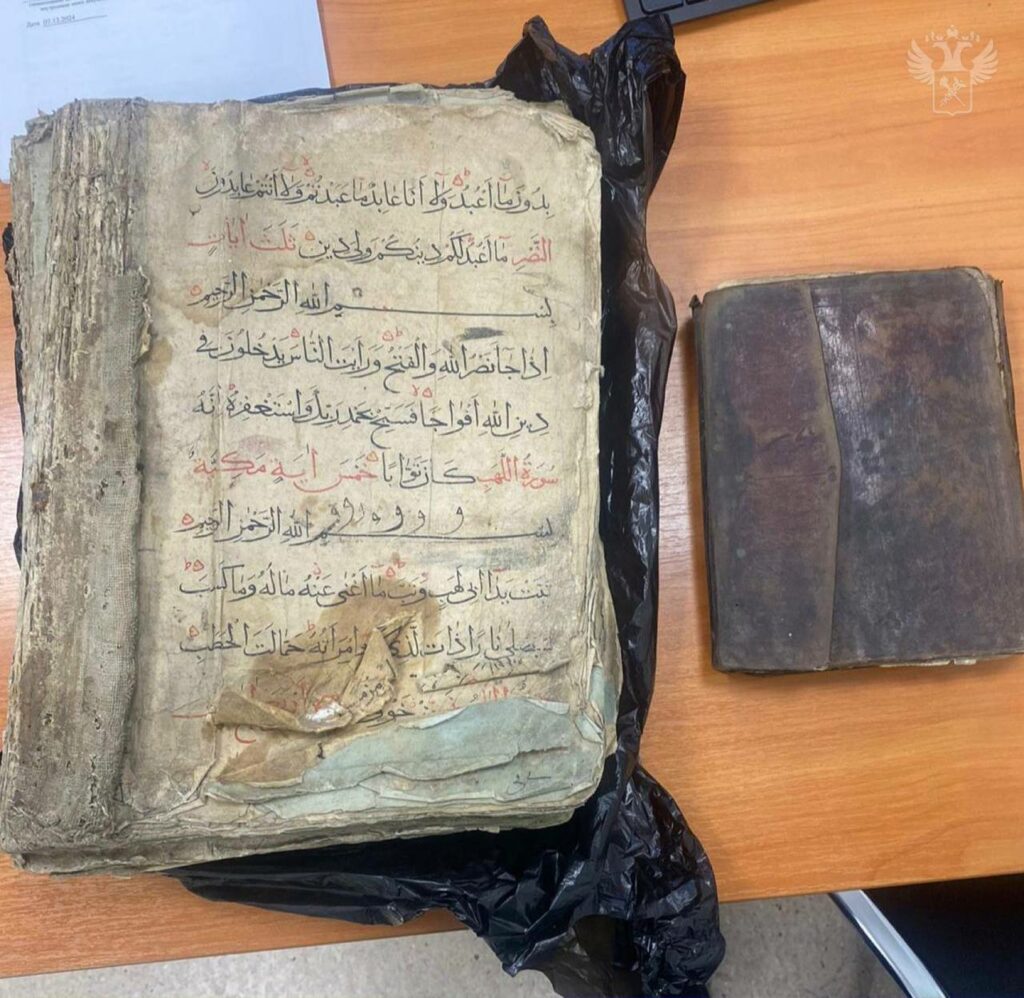 Дата
بِدُونَ مَا اَعْبُدُ وَلَا اَنَا عَابِدٌ مَا عَبَدْتُمْ وَلَا اَنْتُمْ عَابِدُونَ
النَّصْرِ مَا اَعْبُدُ لَكُمْ دِينُكُمْ وَلِىَ دِينِ ثَلَثَ اٰيَاتٍ
بِسْمِ اللهِ الرَّحْمٰنِ الرَّحِيمِ
اِذَا جَا نَصْرُ اللهِ وَالْفَتْحُ وَرَاَيْتَ النَّاسَ يَدْخُلُونَ فِي
دِينِ اللهِ اَفْوَاجًا فَسَبِّحْ بِحَمْدِ رَبِّكَ وَاسْتَغْفِرْهُ اِنَّهُ
سُورَةُ اللَّهَبِ كَانَ تَوَّابًا خَمْسَ اٰيَةٍ مَكِّيَّةٌ
بِسْمِ اللهِ الرَّحْمٰنِ الرَّحِيمِ
تَبَّتْ يَدَا اَبِى لَهَبٍ وَتَبَّ مَا اَغْنٰى عَنْهُ مَالُهُ وَمَا كَسَبَ
سَيَصْلٰى نَارًا ذَاتَ وَامْرَاَتُهُ حَمَّالَتَ الْحَطَبِ